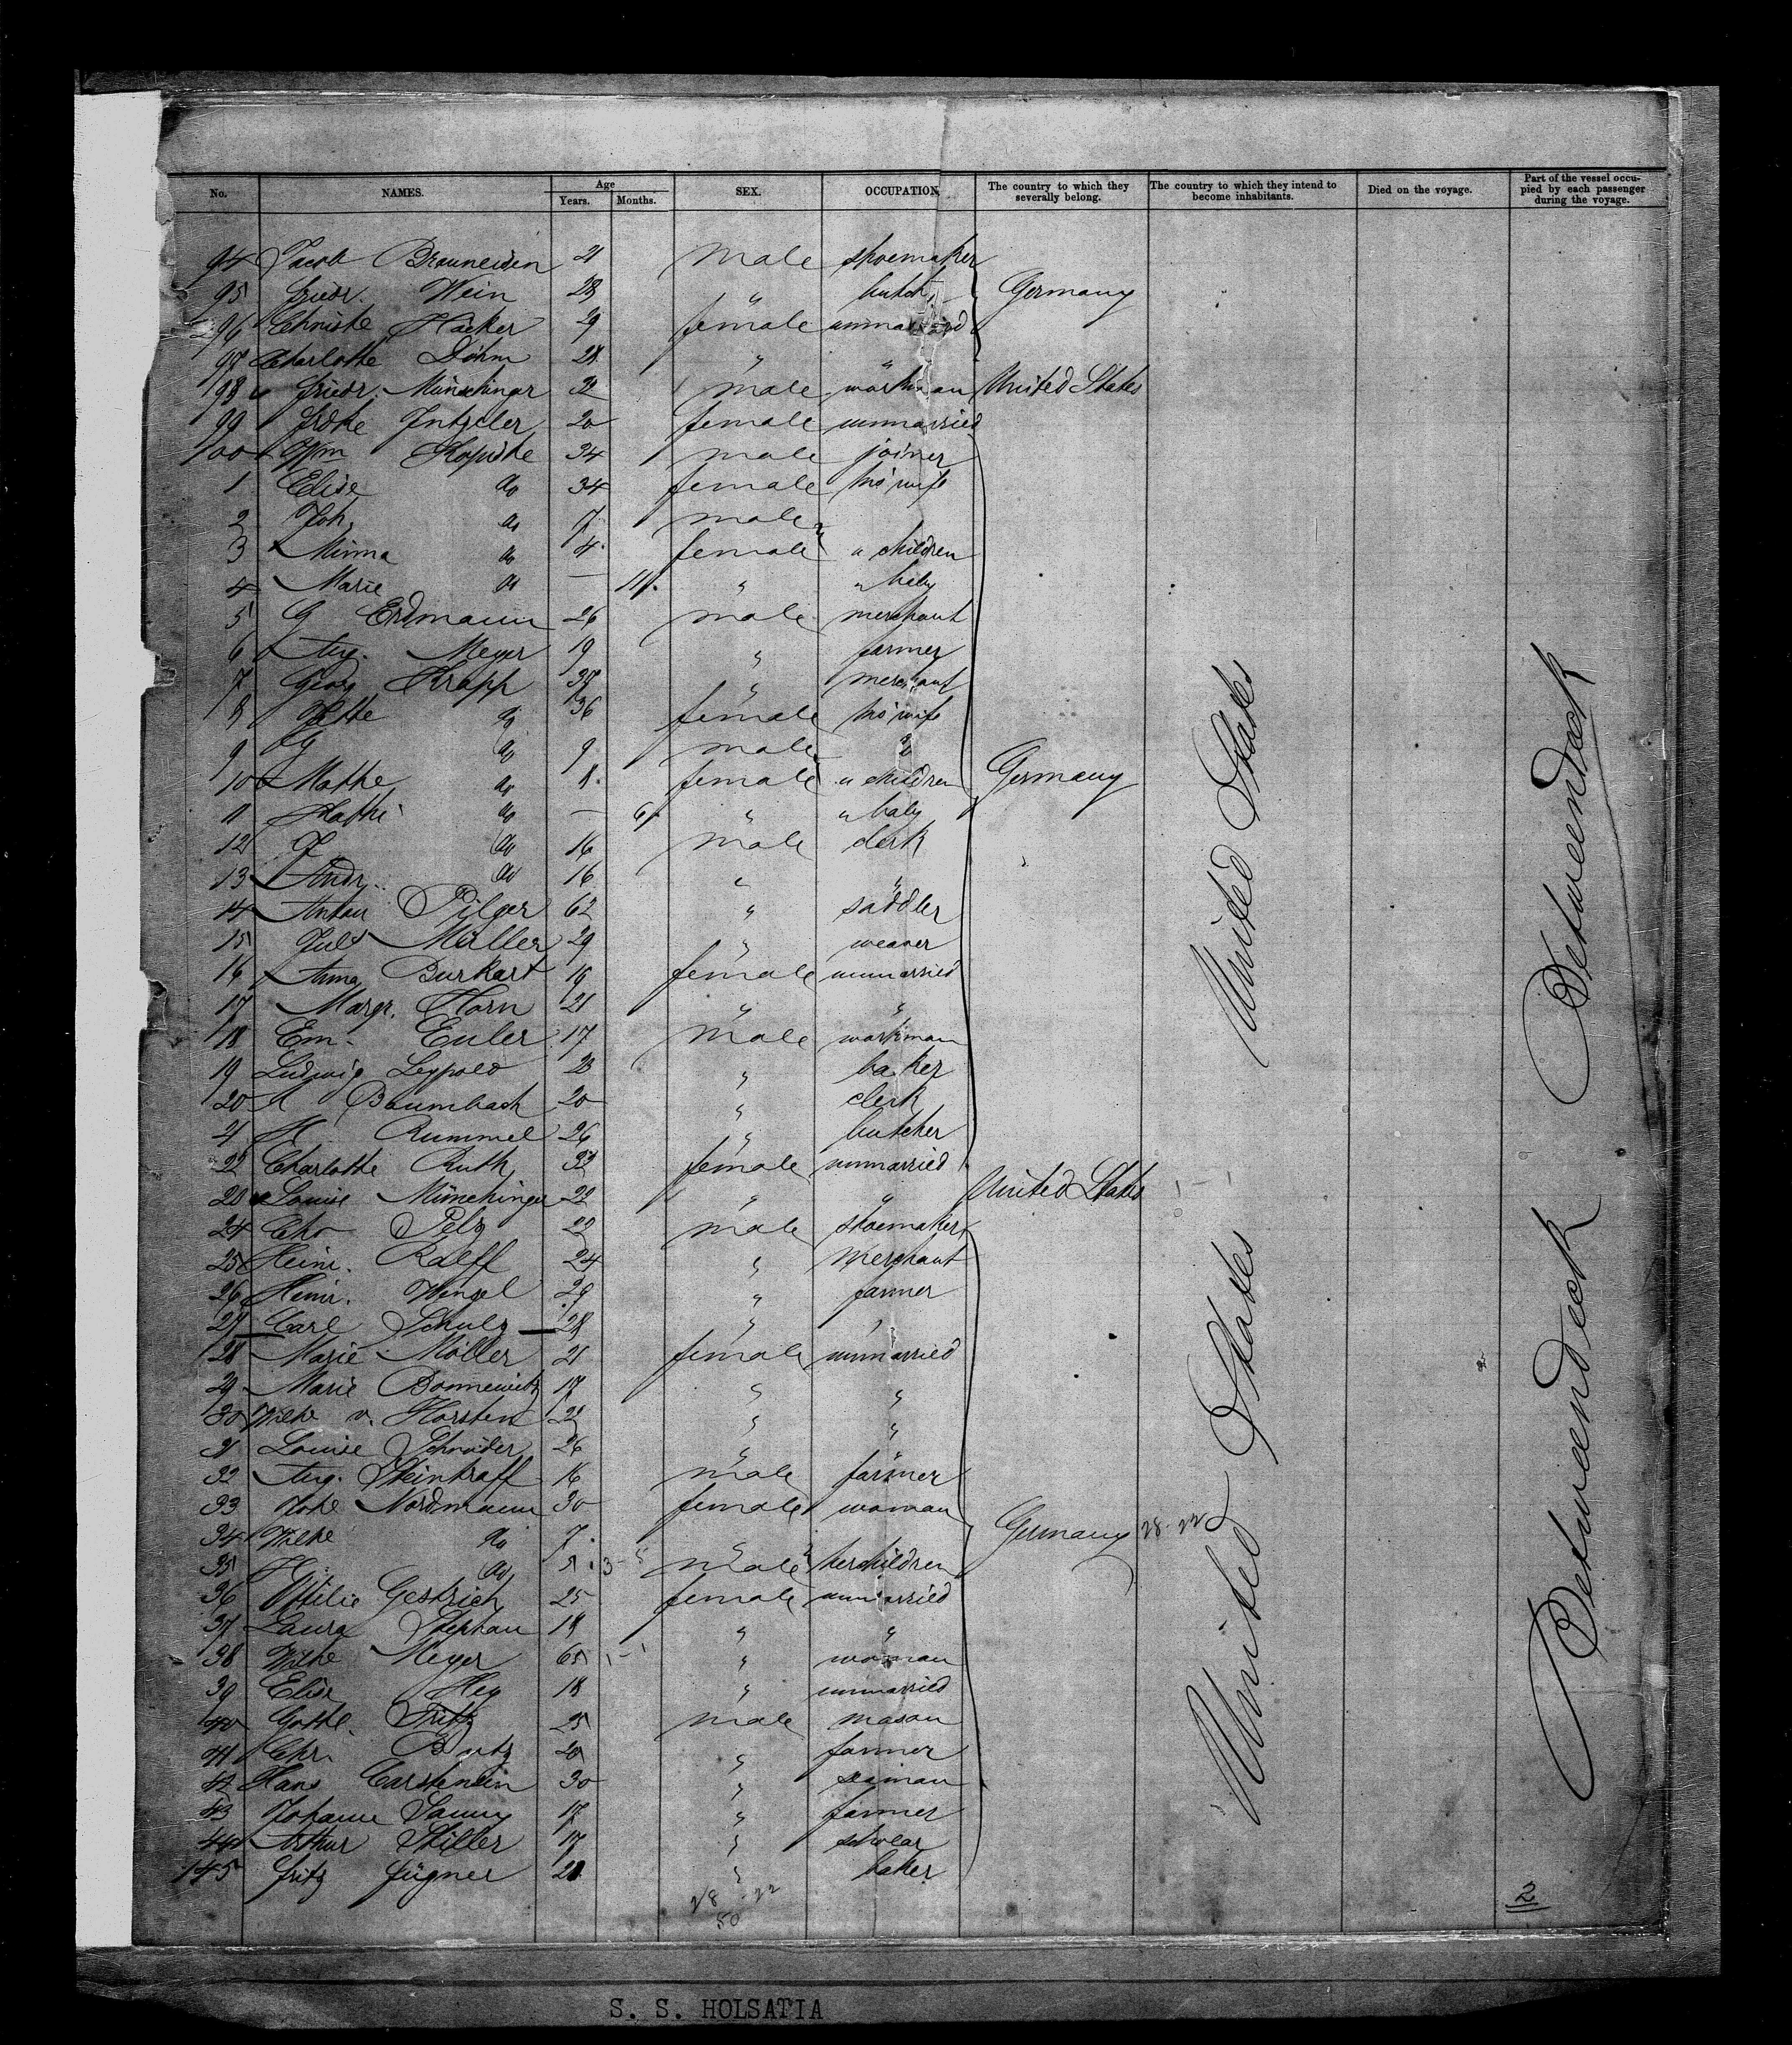 No. NAMES. Age Years. Months. SEX. OCCUPATION The country to which they severally belong. The country to which they intend to become inhabitants. Died on the voyage. Part of the vessel occupied by each passenger during the voyage.
94 Jacob Brauneisen 21 male shoemaker
95 Friedr. Wein 28 " butch. Germany
96 Christe Häcker 29 female unmarried
97 Charlotte Döhm 28 " "
98 Friedr. Münchinger male workman United States
99 20 female unmarried
100 Wm 34 male joiner
1 Elise do 34 female his wife
2 Joh. do 7 male
3 Minna do 4 female " children
4 Marie do — 11 " " baby
5 G Erdmann 26 male merchant
6 Aug. Meyer 19 " farmer
7 Georg Krapp 37 " merchant
8 do 36 female his wife
9 do 9 male
10 Mathe do 8 female " children Germany
11 do — 6 " " baby
12 do 16 male clerk
13 Andr. do 16 " "
14 Anton Pilger 62 " saddler
15 Jul. Müller 29 " weaver
16 Anna Burkart female unmarried
17 Margr. Horn 21 " "
18 Em. Euler 17 male workman
19 Ludwig Leypold 23 " baker
20 A Baumbach 20 " clerk
21 H Rummel 26 " butcher
22 Charlotte Ruth female unmarried
Louise Münchinger 22 " " United States
24 Chr Pelz 22 male shoemaker
25 Heinr. Ralff 24 " merchant
26 Heinr. Wenzel 29 " farmer
27 Carl Schulz 28 " "
28 Marie Möller 21 female unmarried
29 Marie Bonnewitz 17 " "
30 Wilhe v. Horsten " "
31 Louise Schröder 26 " "
32 Aug. Steinkraff 16 male farmer
33 Nordmann 30 female woman
34 Wilhe do 7 " Germany 28-22
35 H do male her children
36 Ottilie Gestrich 25 female unmarried
37 Laura Stephan " "
38 Wilhe Meyer 65 " woman
39 Elise Hey 18 " unmarried
40 Gottl. Fritz 25 male mason
41 Chr. " farmer
42 Hans Carstensen 30 " seaman
43 Johann 17 " farmer
44 Arthur Stiller 17 " scholar
145 Fritz Fügner " baker
28-22
50
United States
United States
Betweendeck
Betweendeck
2
S. S. HOLSATIA